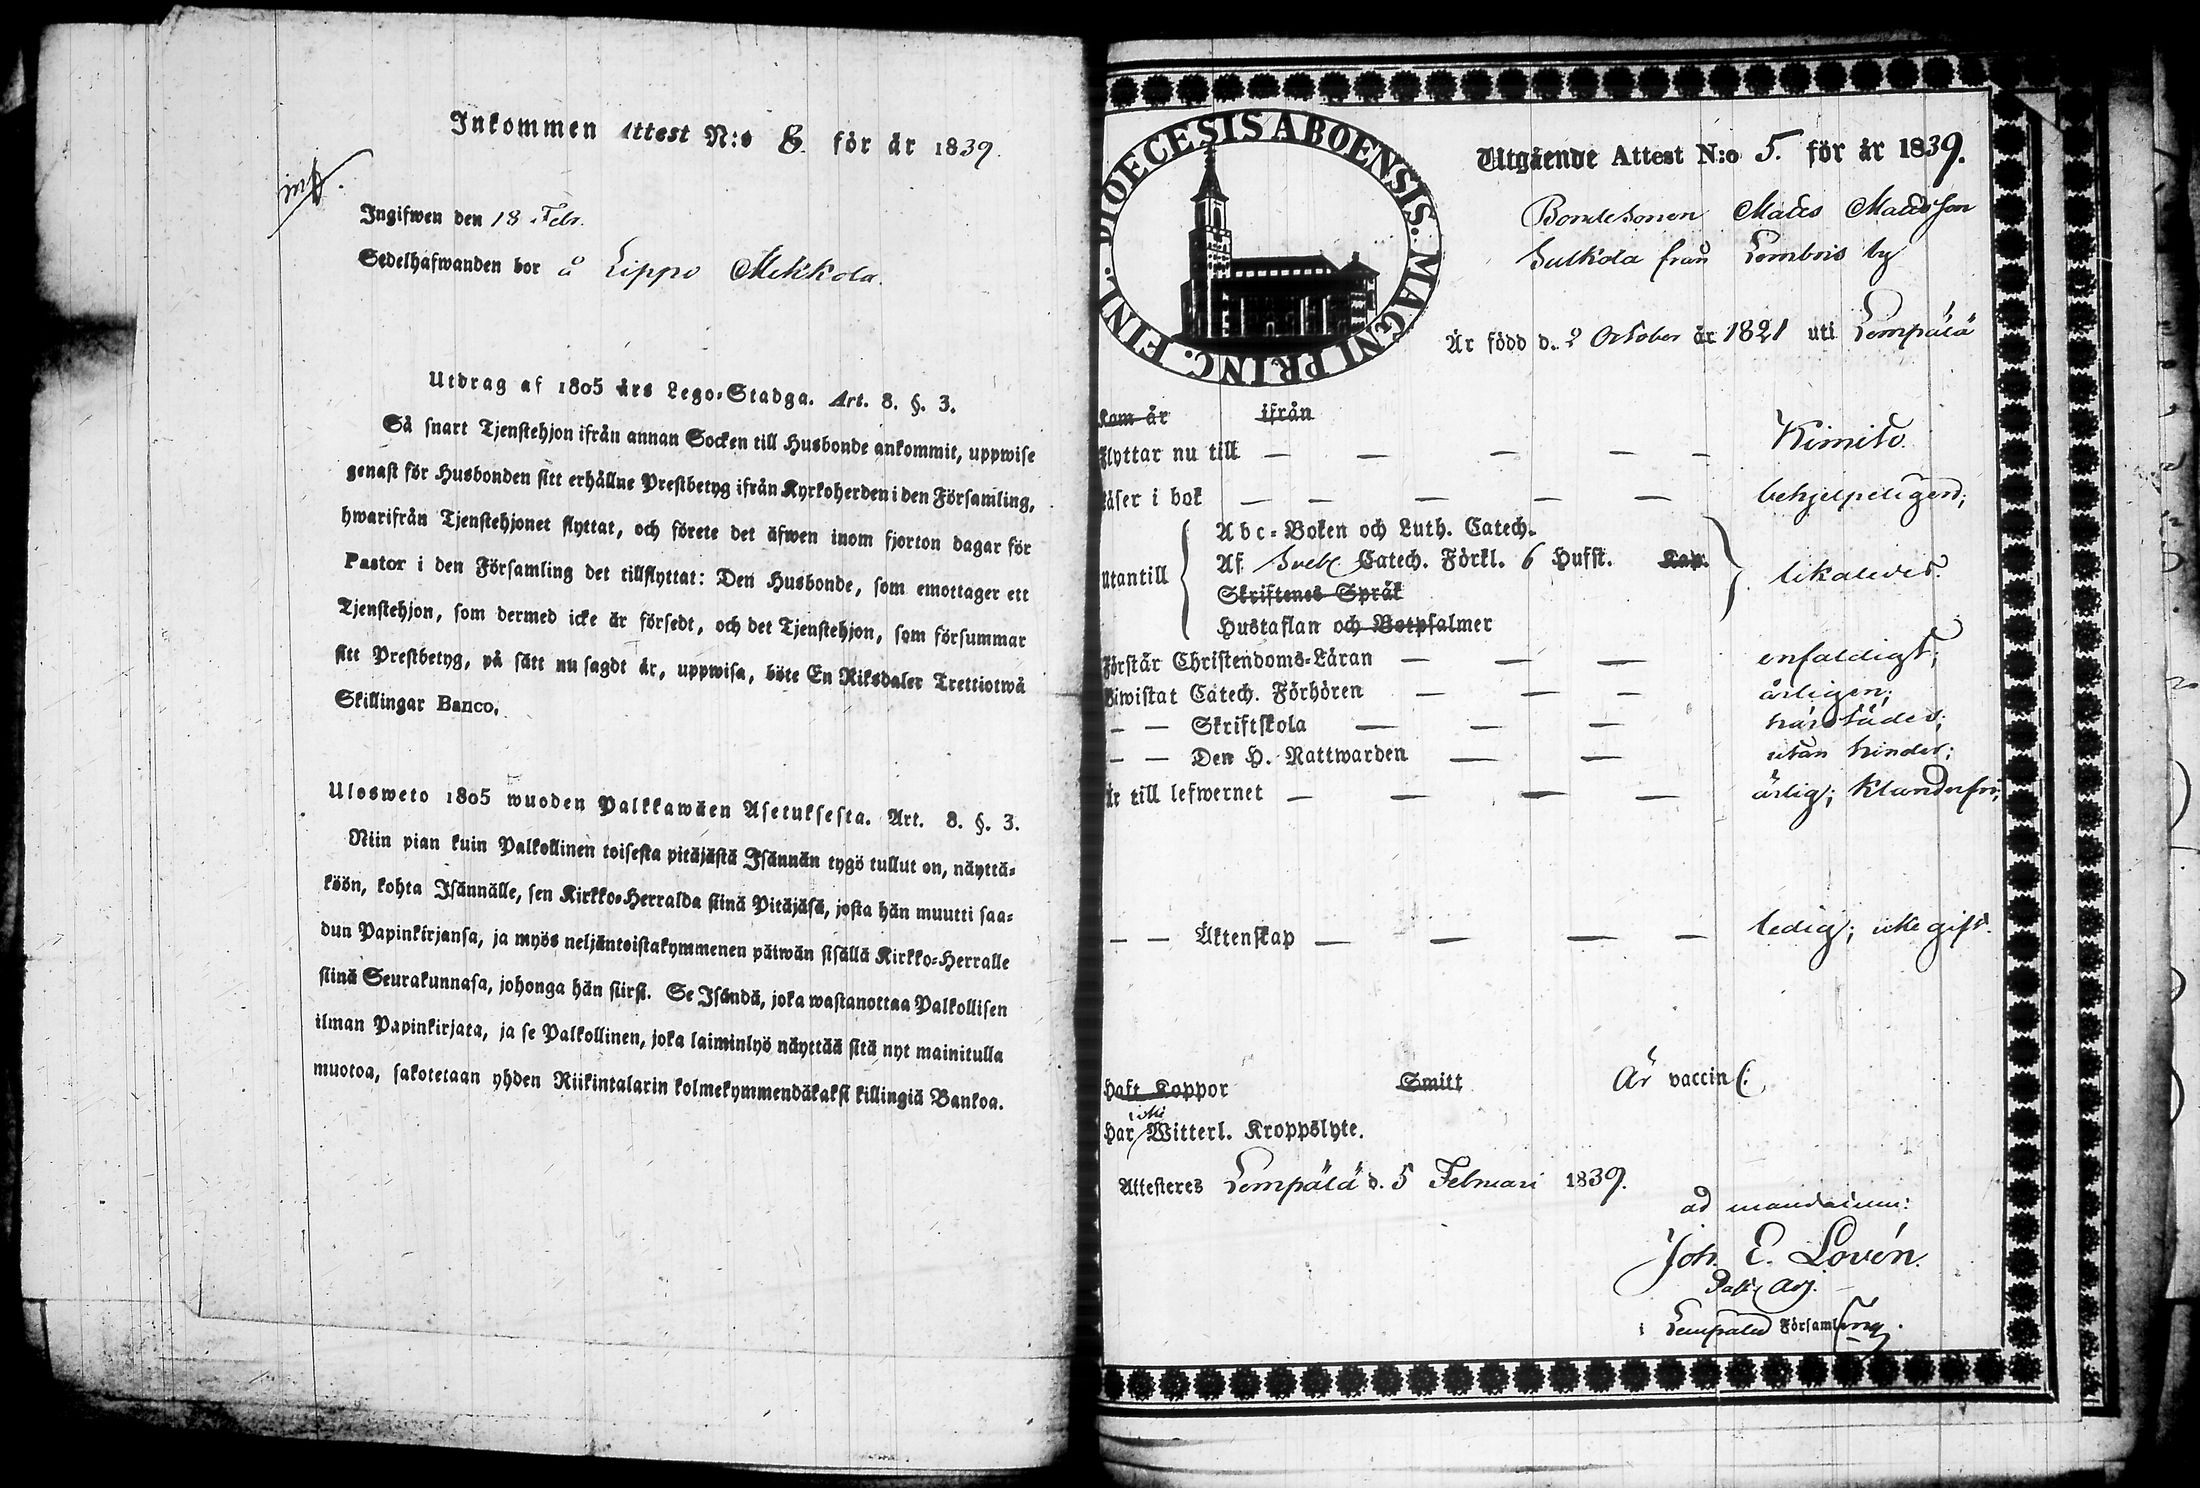 Inkommen Attest N:o 8. för år 1839.
inf.
Ingifwen den 18 Febr.
Sedelhafwanden bor å Lippo Mikkola.
Utdrag af 1805 års Lego-Stadga. Art. 8. §. 3.
Så snart Tjenstehjon ifrån annan Socken till Husbonde ankommit, uppwise
genast för Husbonden sitt erhållne Prestbetyg ifrån Kyrkoherden i den Församling,
hwarifrån Tjenstehjonet flyttat, och förete det äfwen inom fjorton dagar för
Pastor i den Församling det tillflyttat: Den Husbonde, som emottager ett
Tjenstehjon, som dermed icke är försedt, och det Tjenstehjon, som försummar
sitt Prestbetyg, på sätt nu sagdt är, uppwisa, böte En Riksdaler Trettiotwå
Skillingar Banco.
Ulosweto 1805 wuoden Palkkawäen Asetuksesta. Art. 8. §. 3.
Niin pian kuin Palkollinen toisesta pitäjästä Isännän tygö tullut on, näyttä-
köön, kohta Isännälle, sen Kirkko-Herralda siinä Pitäjäsä, josta hän muutti saa-
dun Papinkirjansa, ja myös neljäntoistakymmenen päiwän sisällä Kirkko-Herralle
siinä Seurakunnasa, johonga hän siirsi. Se Isändä, joka wastanottaa Palkollisen
ilman Papinkirjata, ja se Palkollinen, joka laiminlyö näyttää sitä nyt mainitulla
muotoa, sakotetaan yhden Riikintalarin kolmekymmendäkaksi killingiä Bankoa.
DIOECESIS ABOENSIS. MAGNI PRINC. FINL.
Utgående Attest N:o 5. för år 1839.
Bondesonen Matts Mattsson
Sulkola från Lembois by
Är född d. 2 October år 1821 uti Lempälä
Kom år ifrån
Flyttar nu till — — — — — Kimito
Läser i bok — — — — — behjelpeligen;
Abc-Boken och Luth. Catech.
Utantill Af Sveb. Catech. Förkl. 6 Hufst. Kap. likaledes.
Skriftenes Språk
Hustaflan och Botpsalmer
Förstår Christendoms-Läran — — — enfaldigt;
Biwistat Catech. Förhören — — — årligen;
— — Skriftskola — — — härstädes;
— — Den H. Nattwarden — — utan hinder;
Är till lefwernet — — — — ärlig; klanderfri;
— — Äktenskap — — — — ledig; icke gift.
Haft Koppor Smitt Är vaccin.
icke
Har Witterl. Kroppslyte.
Attesteres Lempälä d. 5 Februari 1839.
ad mandatum:
Joh. E. Lovén.
Past. Adj.
i Lempälä Församling.